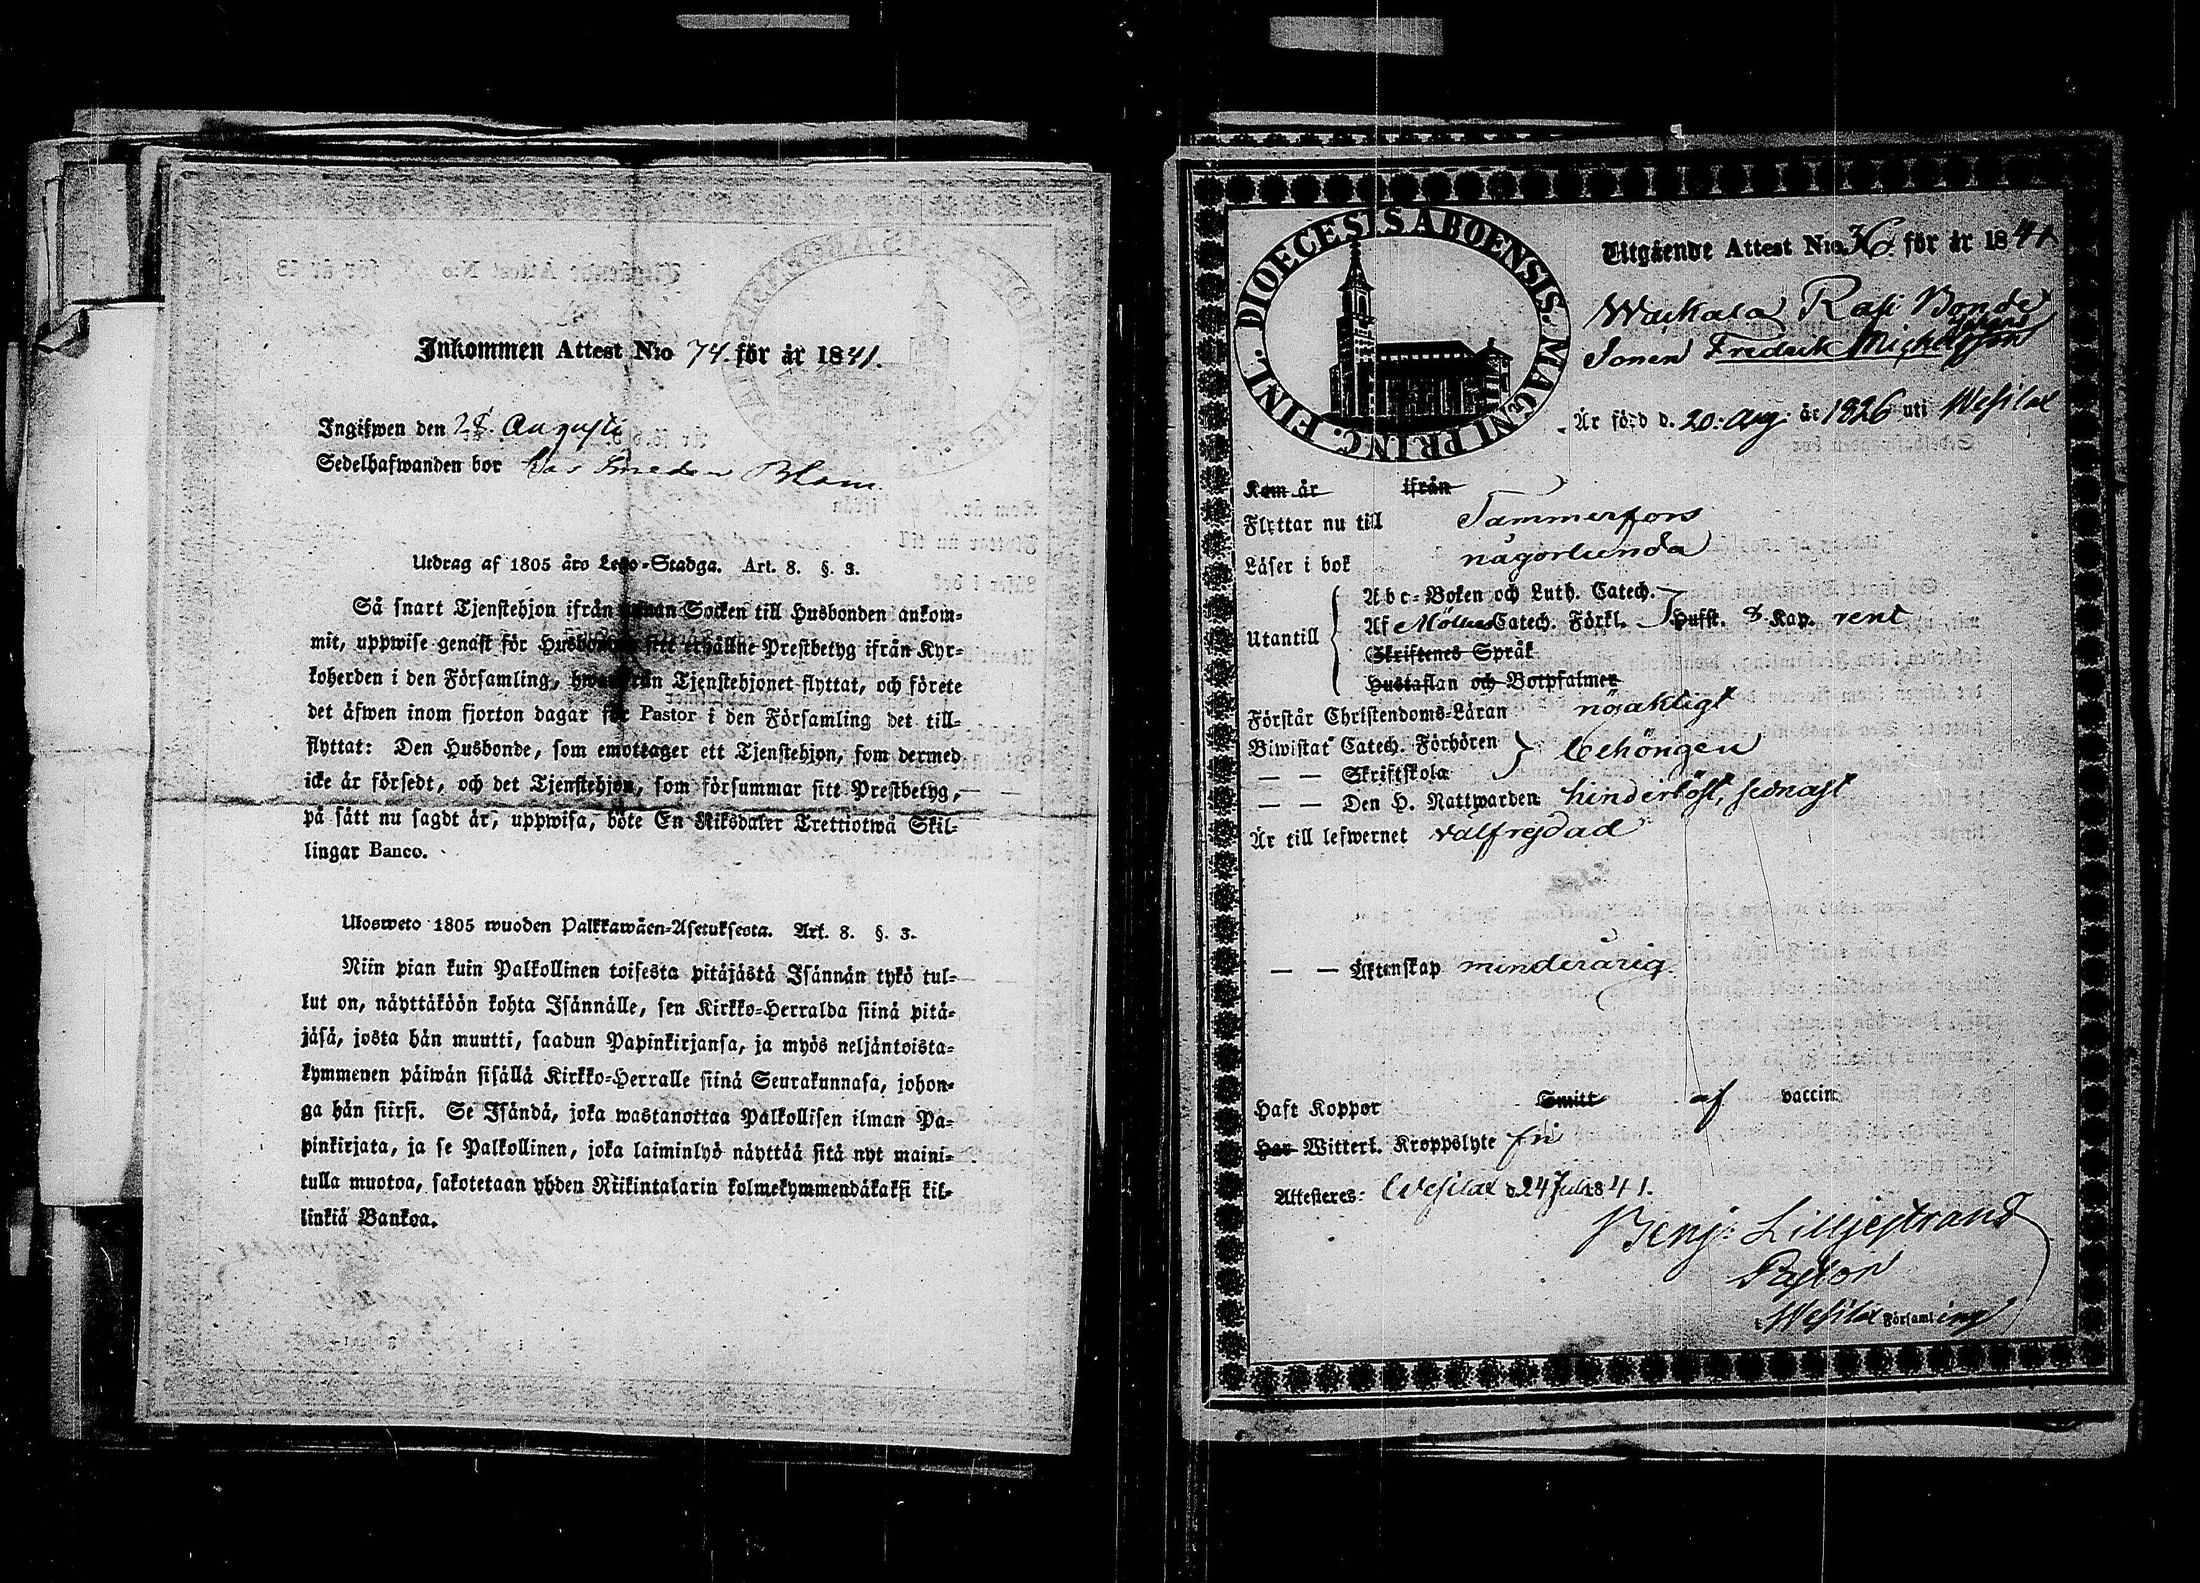 Inkommen Attest N:o 74. för år 1841.
Ingifwen den 28. Augusti
Sedelhafwanden bor hos Smeden Blom
Utdrag af 1805 års Lego-Stadga. Art. 8. §. 3.
Så snart Tjenstehjon ifrån annan Socken till Husbonden ankom-
mit, uppwise genast för Husbonden sitt erhållne Prestbetyg ifrån Kyr-
koherden i den Församling, hwarifrån Tjenstehjonet flyttat, och förete
det äfwen inom fjorton dagar för Pastor i den Församling det till-
flyttat: Den Husbonde, som emottager ett Tjenstehjon, som dermed
icke är försedt, och det Tjenstehjon, som försummar sitt Prestbetyg,
på sätt nu sagdt är, uppwisa, böte En Riksdaler Trettiotwå Skil-
lingar Banco.
Ulosweto 1805 wuoden Palkkawäen-Asetuksesta. Art. 8. §. 3.
Niin pian kuin Palkollinen toisesta pitäjästä Isännän tykö tul-
lut on, näyttäköön kohta Isännälle, sen Kirkko-Herralda siinä pitä-
jäsä, josta hän muutti, saadun Papinkirjansa, ja myös neljäntoista-
kymmenen päiwän sisällä Kirkko-Herralle siinä Seurakunnasa, johon-
ga hän siirsi. Se Isändä, joka wastanottaa Palkollisen ilman Pa-
pinkirjata, ja se Palkollinen, joka laiminlyö näyttää sitä nyt maini-
tulla muotoa, sakotetaan yhden Riikintalarin kolmekymmendäkaksi kil-
linkiä Bankoa.
FINL. DIOECESIS ABOENSIS. MAGNI PRINC.
Utgående Attest N:o 36. för år 1841
Waikala Rasi Bonde
Sonen Fredrik Michelsson
Är född d. 20. Aug. år 1826 uti Wesilax
Kom år ifrån
Flyttar nu till Tammerfors
Läser i bok någorlunda
Utantill
Abc-Boken och Luth. Catech.
Af Möllers Catech. Förkl. Husst. & Kap. rent
Skriftenes Språk
Hustaflan och Botpsalmer
Förstår Christendoms-Läran nöjaktigt
Biwistat Catech. Förhören
— — Skriftskola behörigen
— — Den H. Nattwarden hinderlöst, sednast
Är till lefwernet välfrejdad
— — Äktenskap minderårig
Haft Koppor Smitt af vaccin
Har Witterl. Kroppslyte fri
Attesteres: Wesilax d. 24 Juli 1841.
Benj: Lilljestrand
Pastor
i Wesilax Församling